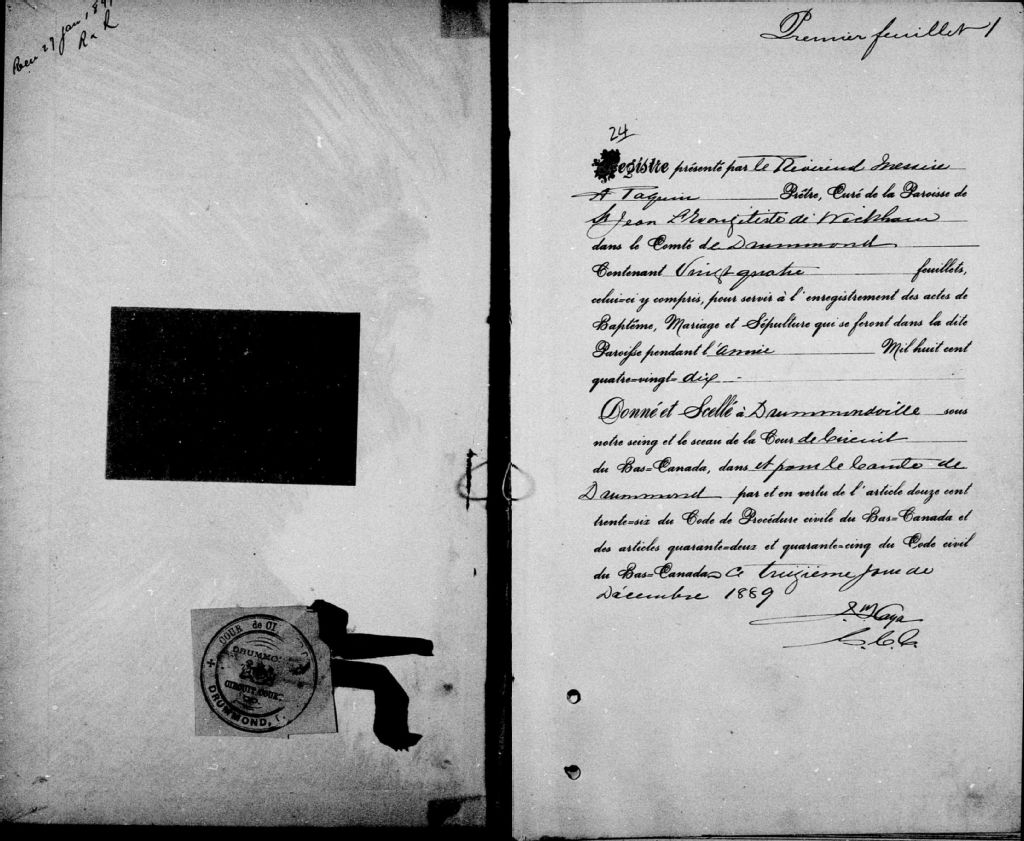 Rec 27 Jan, 189
R & R
+ COUR de CI
DRUMMO
CIRCUIT COUR
DRUMMOND,
Premier feuillet 1
24
Registre présenté par le Révérend Messire
A Taquin Prêtre, Curé de la Paroisse de
St Jean L'Evangeliste de Wickham
dans le Comté de Drummond
Contenant Vingt quatre feuillets,
celui=ci y compris, pour servir à l'enregistrement des actes de
Baptême, Mariage et Sépulture qui se feront dans la dite
Paroisse pendant l'année Mil huit cent
quatre=vingt= dix
Donné et Scellé à Drummondville sous
notre seing et le sceau de la Cour de Circuit
du Bas=Canada, dans et pour le Comté de
Drummond par et en vertu de l'article douze cent
trente=six du Code de Procédure civile du Bas=Canada et
des articles quarante=deux et quarante=cinq du Code civil
du Bas=Canada Ce treizième Jour de
Décembre 1889
C.C.C.